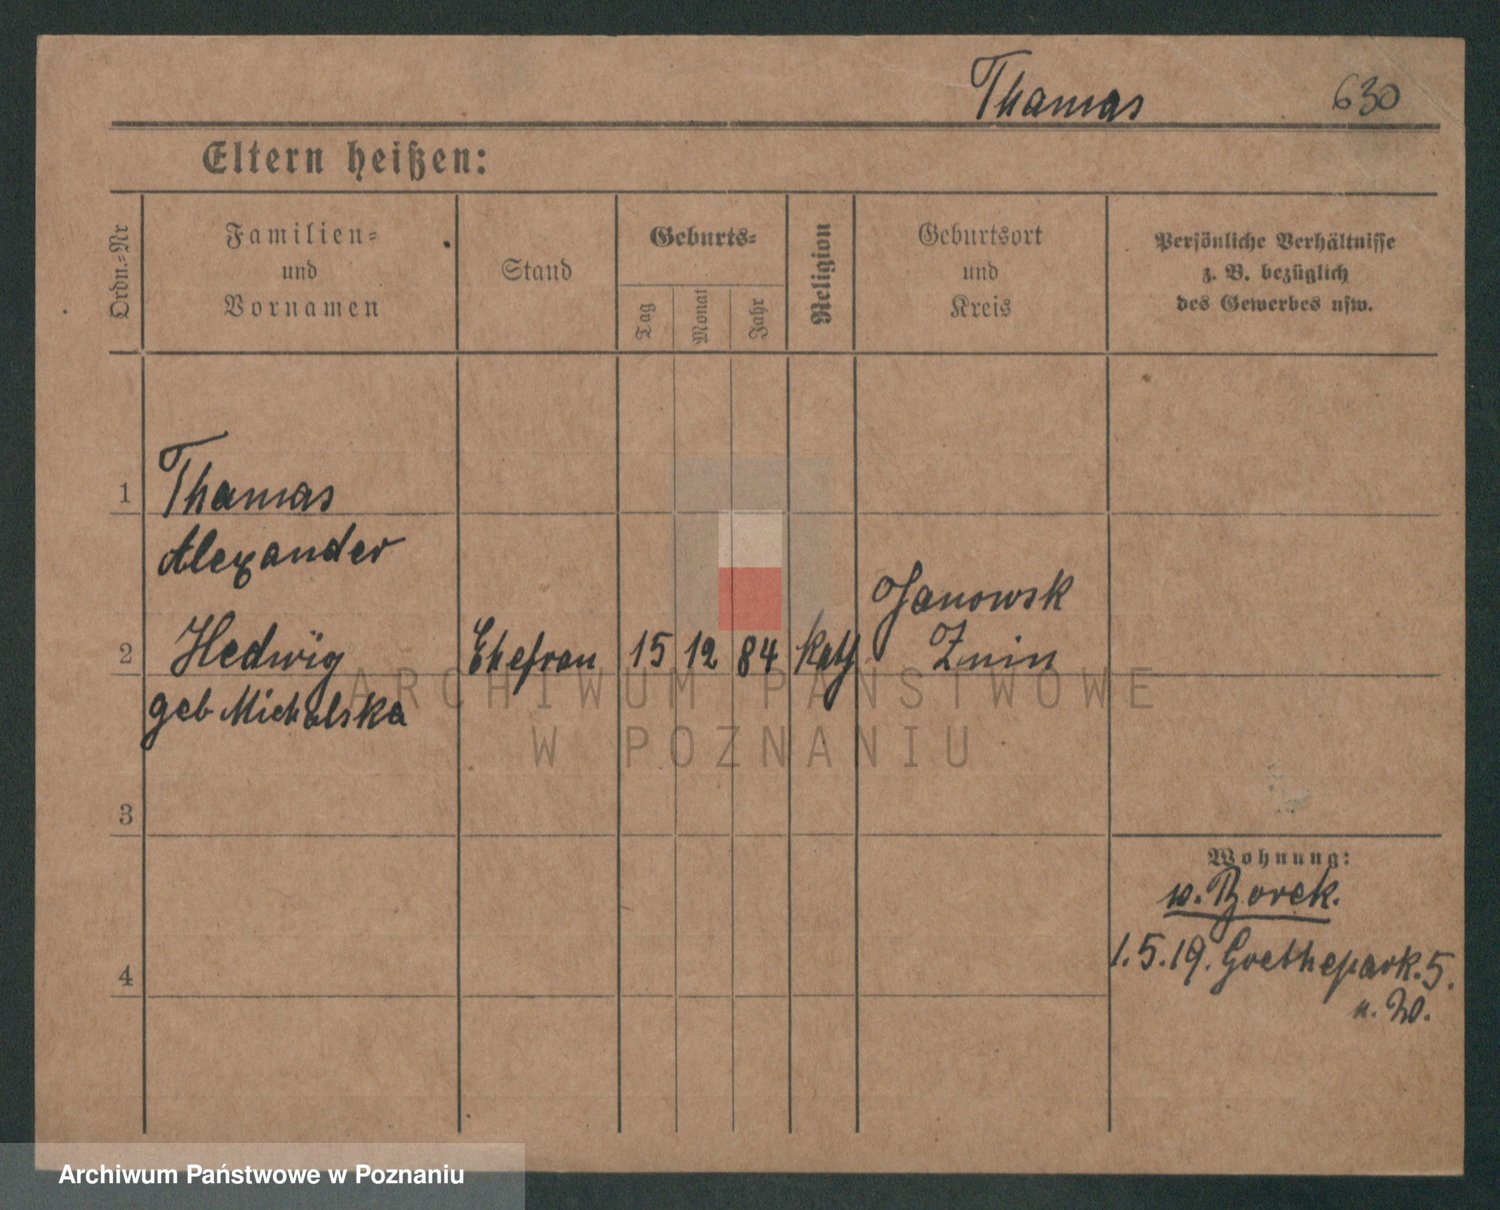 Thamas 630
Eltern heißen:
Ordn.=Nr
Familien=
und
Vornamen
Stand
Geburts=
Tag
Monat
Jahr
Religion
Geburtsort
und
Kreis
Persönliche Verhältnisse
z. B. bezüglich
des Gewerbes usw.
1 Thamas
Alexander
2 Hedwig Ehefrau 15 12 84 kath Janowsk
Znin
geb Michalska
3
4
Wohnung:
v. Borek.
1.5.19. Goethepark. 5.
ARCHIWUM PAŃSTWOWE
W POZNANIU
Archiwum Państwowe w Poznaniu